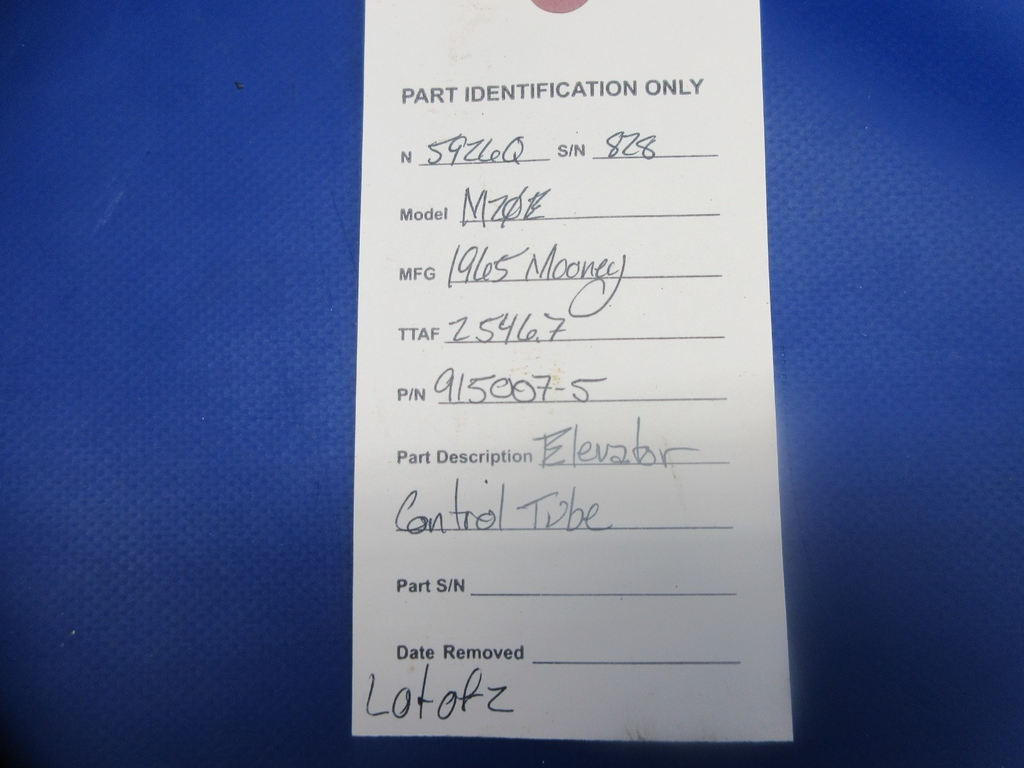 PART IDENTIFICATION ONLY
N 5926Q S/N 828
Model M20E
MFG 1965 Mooney
TTAF 2546.7
P/N 915007-5
Part Description Elevator
Control Tube
Part S/N
Date Removed
Lot of 2